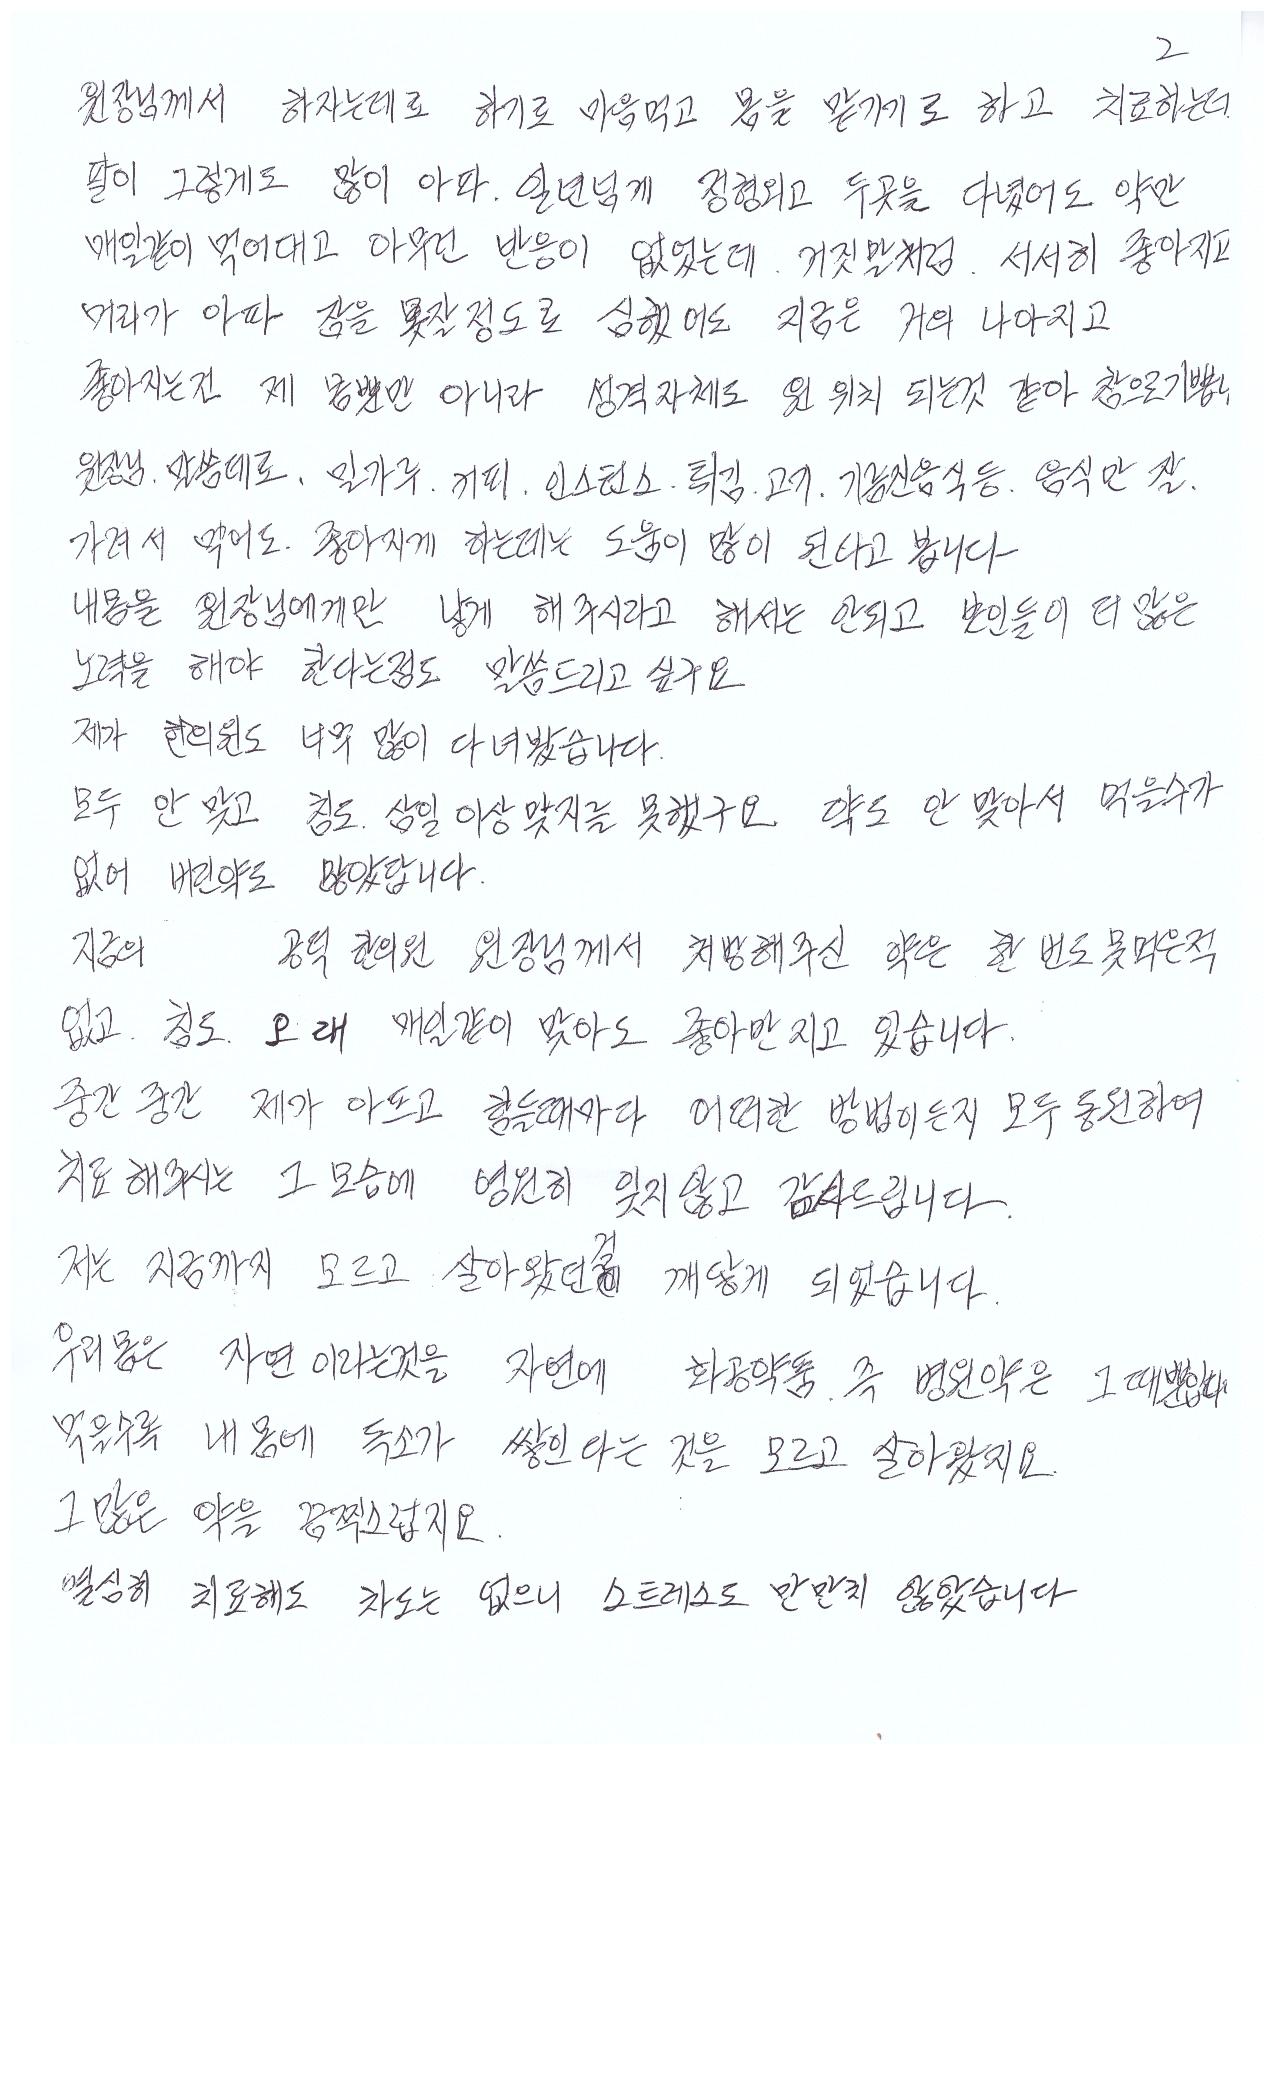 2
원장님께서 하자는데로 하기로 마음먹고 몸을 맡기기로 하고 치료하는데
팔이 그렇게도 많이 아파. 일년넘게 정형외과 두곳을 다녔어도 약만
매일같이 먹어대고 아무런 반응이 없었는데. 거짓말처럼. 서서히 좋아지고
머리가 아파 잠을 못잘정도로 심했어도 지금은 거의 나아지고
좋아지는건 제 몸뿐만 아니라 성격자체도 원위치 되는것 같아 참으로기쁩니
원장님. 말씀데로. 밀가루. 커피. 인스턴스. 튀김. 고기. 기름진음식등. 음식만 잘.
가려서 먹어도. 좋아지게 하는데는 도움이 많이 된다고 봅니다
내몸을 원장님에게만 낳게 해주시라고 해서는 안되고 본인들이 더 많은
노력을 해야 한다는점도 말씀드리고 싶구요
제가 한의원도 너무 많이 다녀봤습니다.
모두 안 맞고 침도. 삼일 이상 맞지를 못했구요 약도 안 맞아서 먹을수가
없어 버린약도 많았답니다.
지금의 공덕 한의원 원장님께서 처방해주신 약은 한 번도 못먹은적
없고. 침도. 오래 매일같이 맞아도 좋아만 지고 있습니다.
중간 중간 제가 아프고 힘들때마다 어떠한 방법이든지 모두 동원하여
치료 해주시는 그 모습에 영원히 잊지 않고 감사드립니다.
저는 지금까지 모르고 살아왔던걸 깨닿게 되었습니다.
우리몸은 자연이라는것을 자연에 화공약품. 즉 병원약은 그때뿐입니다
먹을수록 내 몸에 독소가 쌓인다는 것을 모르고 살아왔지요.
그 많은 약을 끔찍스럽지요.
열심히 치료해도 차도는 없으니 스트레스도 만만치 않았습니다